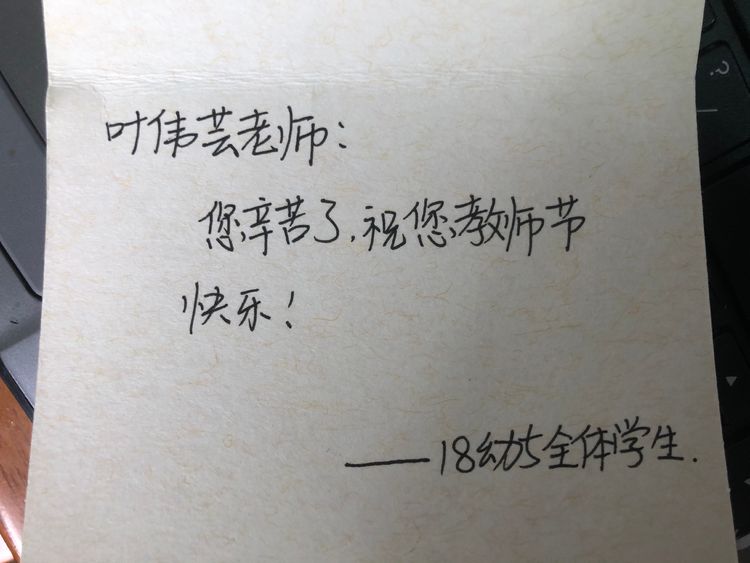 叶伟芸老师：
您辛苦了，祝您教师节
快乐！
——18幼5全体学生.
?